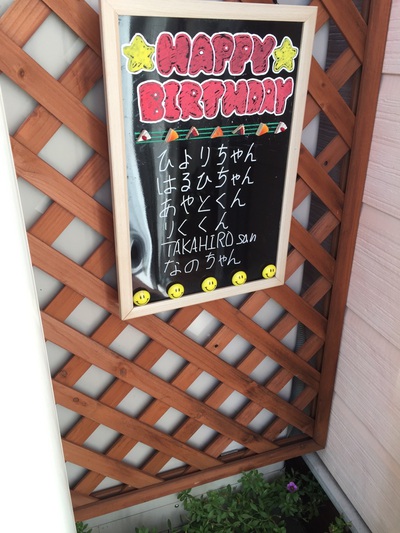 HAPPY
BIRTHDAY
ひよりちゃん
はるひちゃん
あやとくん
りくくん
TAKAHIRO san
なのちゃん